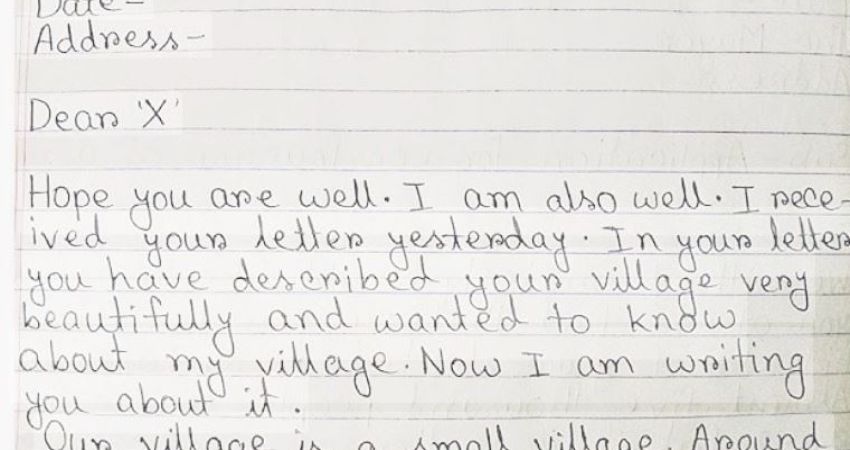 Date-
Address-
Dear 'X'
Hope you are well. I am also well. I rece-
ived your letter yesterday. In your letter
you have described your village very
beautifully and wanted to know
about my village. Now I am writing
you about it.
Our village is a small village. Around